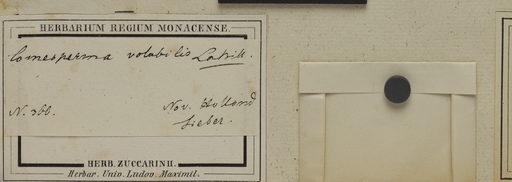 HERBARIUM REGIUM MONACENSE.
Comesperma volubilis Labill.
N. 366.
Nov. Holland
Sieber.
HERB. ZUCCARINII.
Herbar. Univ. Ludov. Maximil.